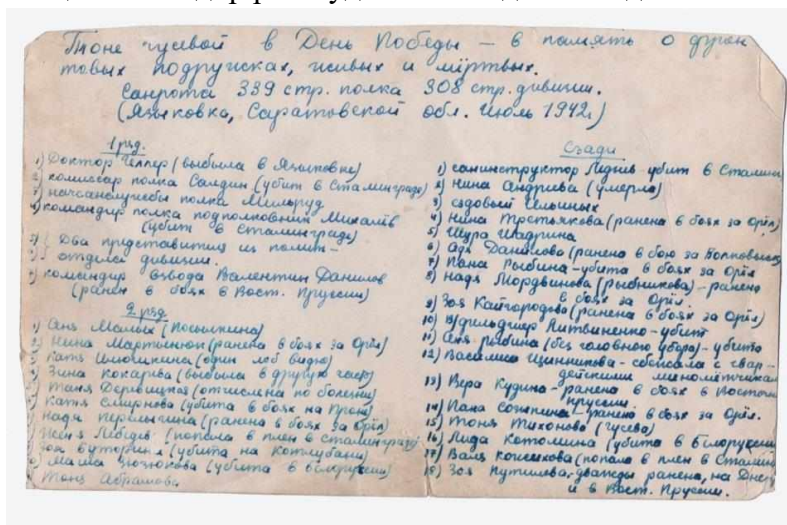 Тоне Гусевой в День Победы – в память о фрон
товых подружках, живых и мёртвых.
Санрота 339 стр. полка 308 стр. дивизии.
(Языковка, Саратовской обл. Июль 1942г)
1 ряд.
1) Доктор Геллер (выбыла в Языковке)
2) комиссар полка Салдин (убит в Сталинграде)
начсанслужбы полка Мильруд
командир полка подполковник Михалёв
(убит в Сталинграде)
Два представителя из полит-
отдела дивизии.
командир взвода Валентин Данилов
(ранен в боях в Вост. Пруссии)
2 ряд
1) Аня Малых (Посошкина)
Нина Мартынюк (ранена в боях за Орёл)
Катя (один лоб виден)
Зина Кокарева (выбыла в другую часть)
Таня Деревицкая (отчислена по болезни)
Катя Смирнова (убита в боях на Проне)
Надя (ранена в боях за Орёл)
Женя Лебедев (попала в плен в Сталинграде)
Зоя Буторина (убита на Котлубани)
Маша (убита в Белоруссии)
Тоня Абрашов.
Сзади
1) санинструктор Леднев убит в Сталин
2) Нина Андриева (умерла)
3) ездовый Ильиных
4) Нина Третьякова (ранена в боях за Орёл)
5) Шура Шадрина
6) Ада Данилова (ранена в бою за
7) Пана Рыбина – убита в боях за Орёл
8) Надя Мордвинова (Рыбникова) – ранена
в боях за Орёл
9) Зоя Кайгородова (ранена в боях за Орёл)
10) В/фельдшер Литвиненко – убит
11) Аня Рыбина (без головного убора) – убита
12) Василиса Щинникова – сбежала с гвар-
дейскими миномётчиками
13) Вера Кудина – ранена в боях в Восточн
пруссии
14) Пана – ранена в боях за Орёл.
15) Тоня Тихонова (Гусева)
16) Лида Котомина (убита в Белоруссии
17) Валя Кожихова (попала в плен в Сталин
18) Зоя Путилова, дважды ранена, на Днеп
и в Вост. Пруссии.